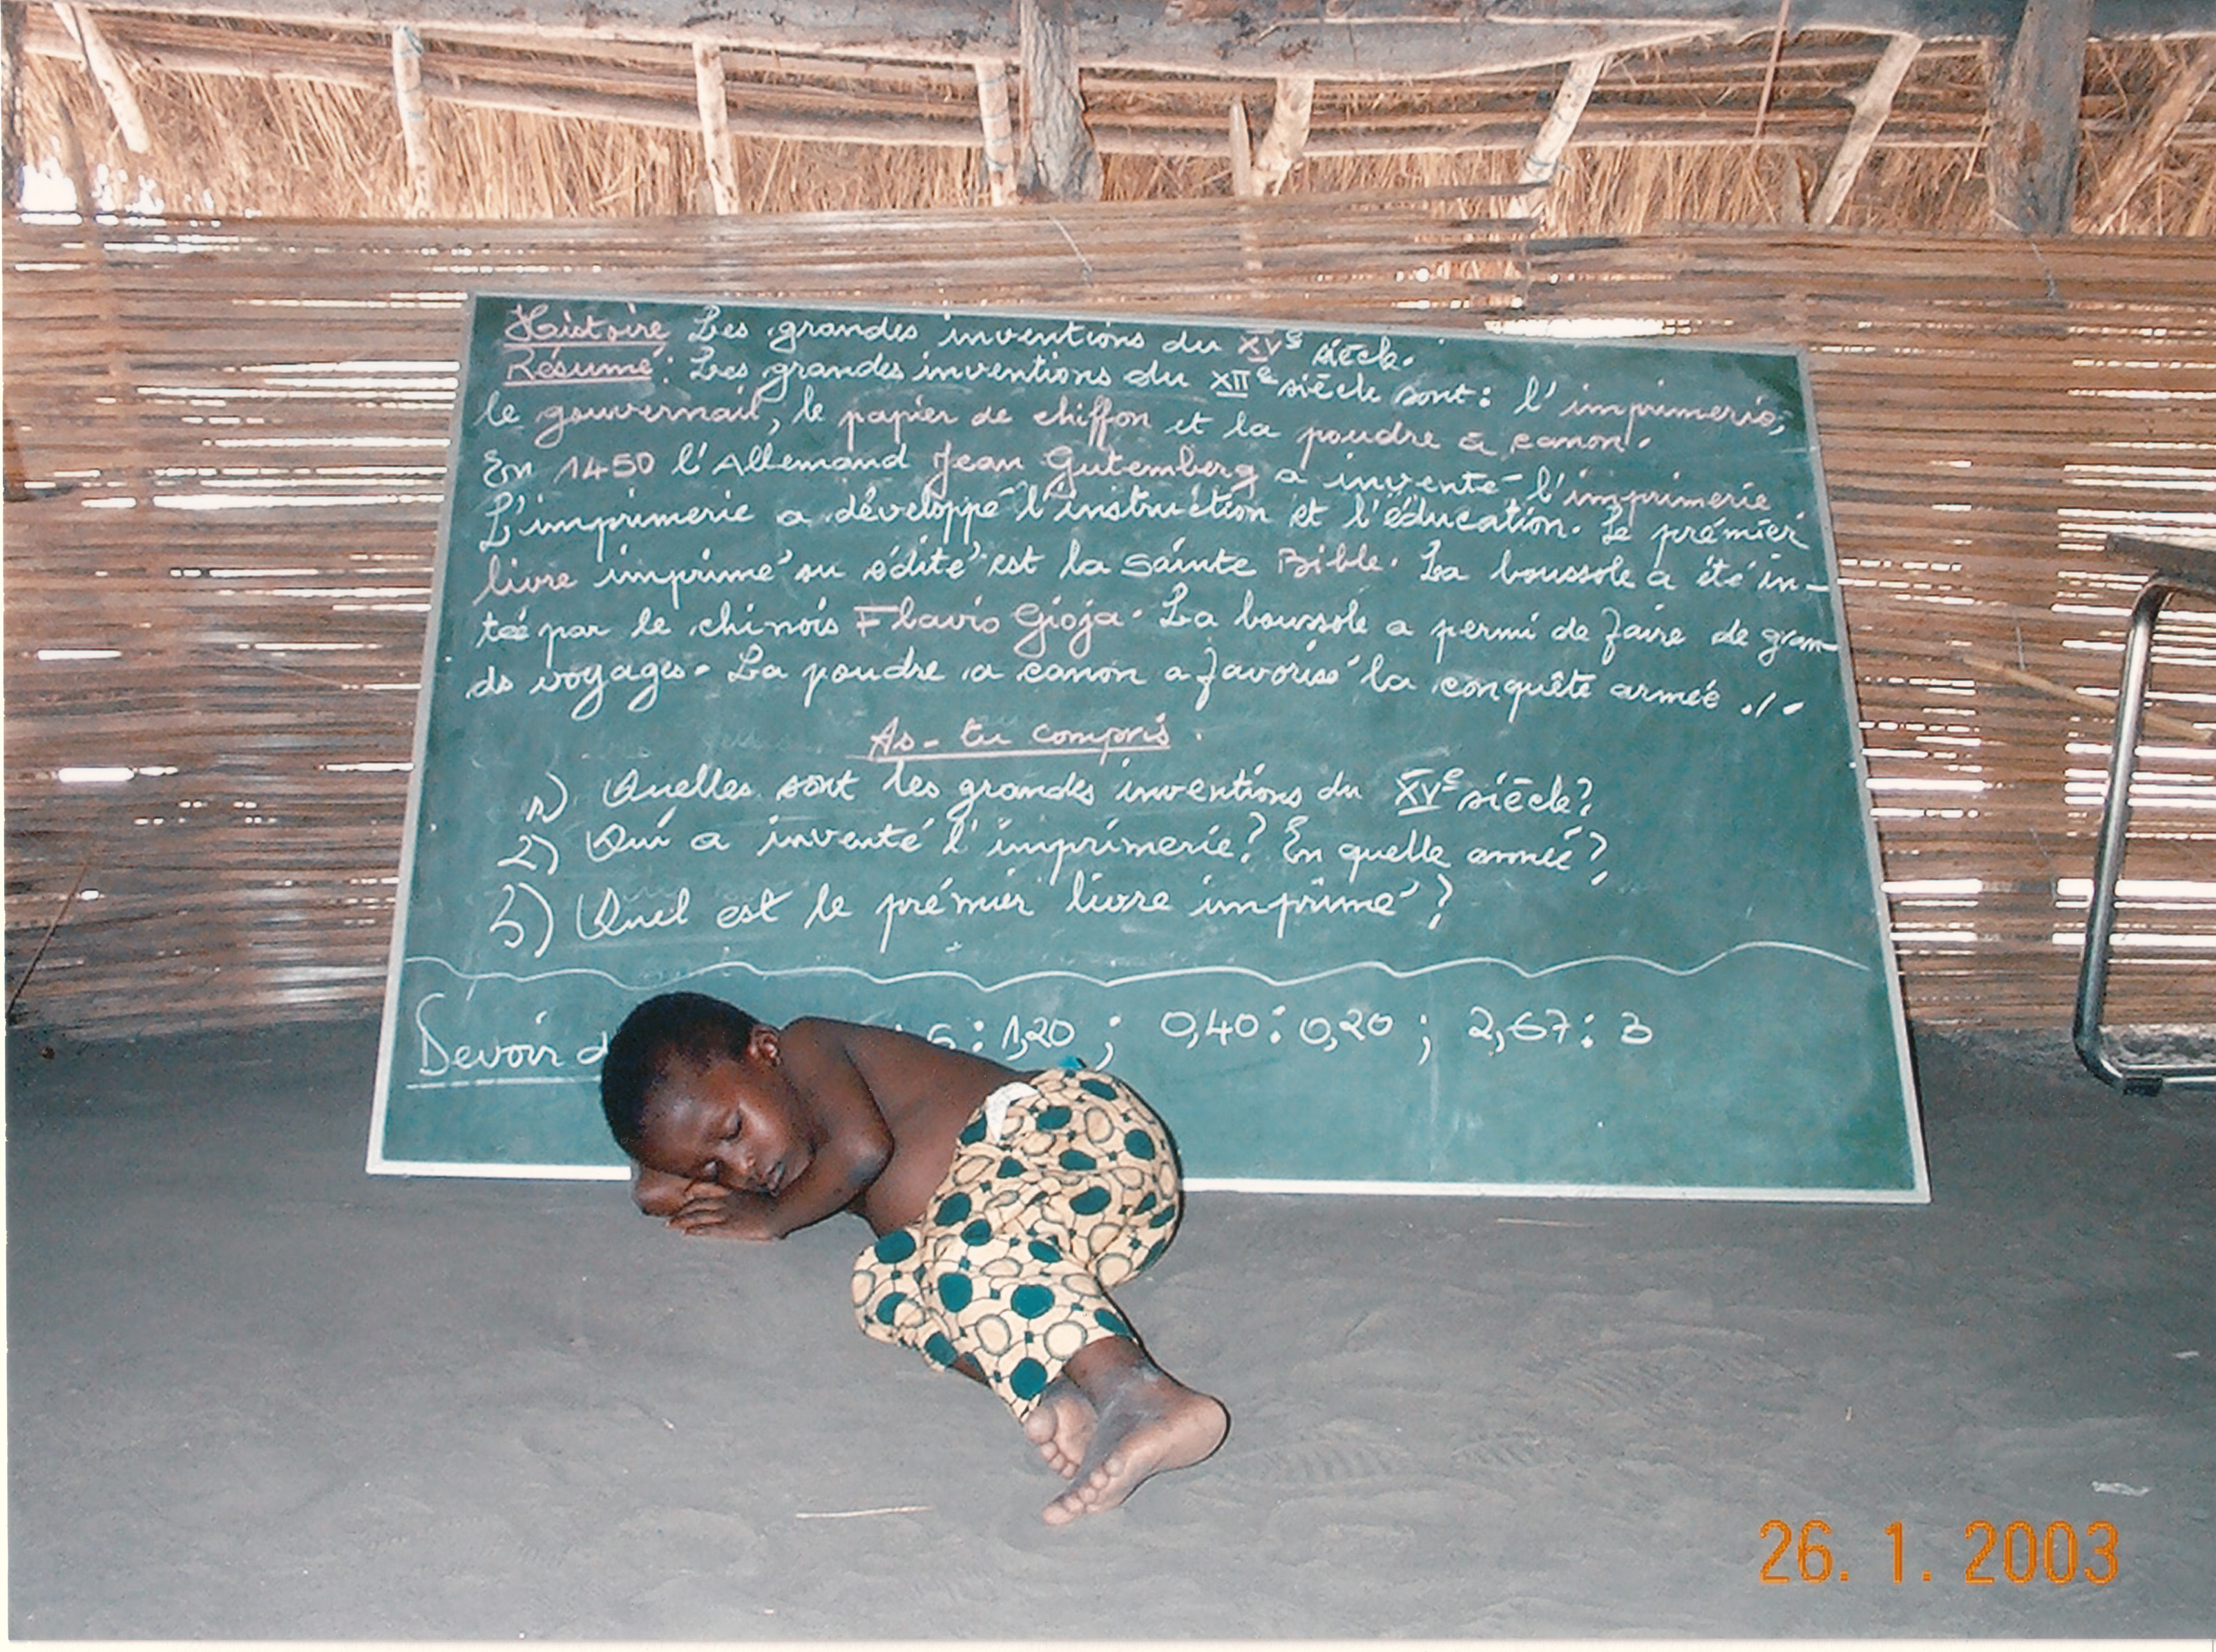 Histoire Les grandes inventions du XVe siècle.
Résumé: Les grandes inventions du XIIe siècle sont: l'imprimerie,
le gouvernail, le papier de chiffon et la poudre à canon.
En 1450 l'Allemand Jean Gutemberg a inventé l'imprimerie.
L'imprimerie a développé l'instruction et l'éducation. Le prémier
livre imprimé ou édité est la Sainte Bible. La boussole a été in-
teé par le chinois Flavio Gioja. La boussole a permi de faire de gran-
ds voyages. La poudre a canon a favorisé la conquête armée ./.
As-tu compris.
1) Quelles sont les grandes inventions du XVe siècle?
2) Qui a inventé l'imprimerie? En quelle année?
3) Quel est le prémier livre imprimé?
Devoir 6 : 1,20 ; 0,40 : 0,20 ; 2,67 : 3
26. 1. 2003